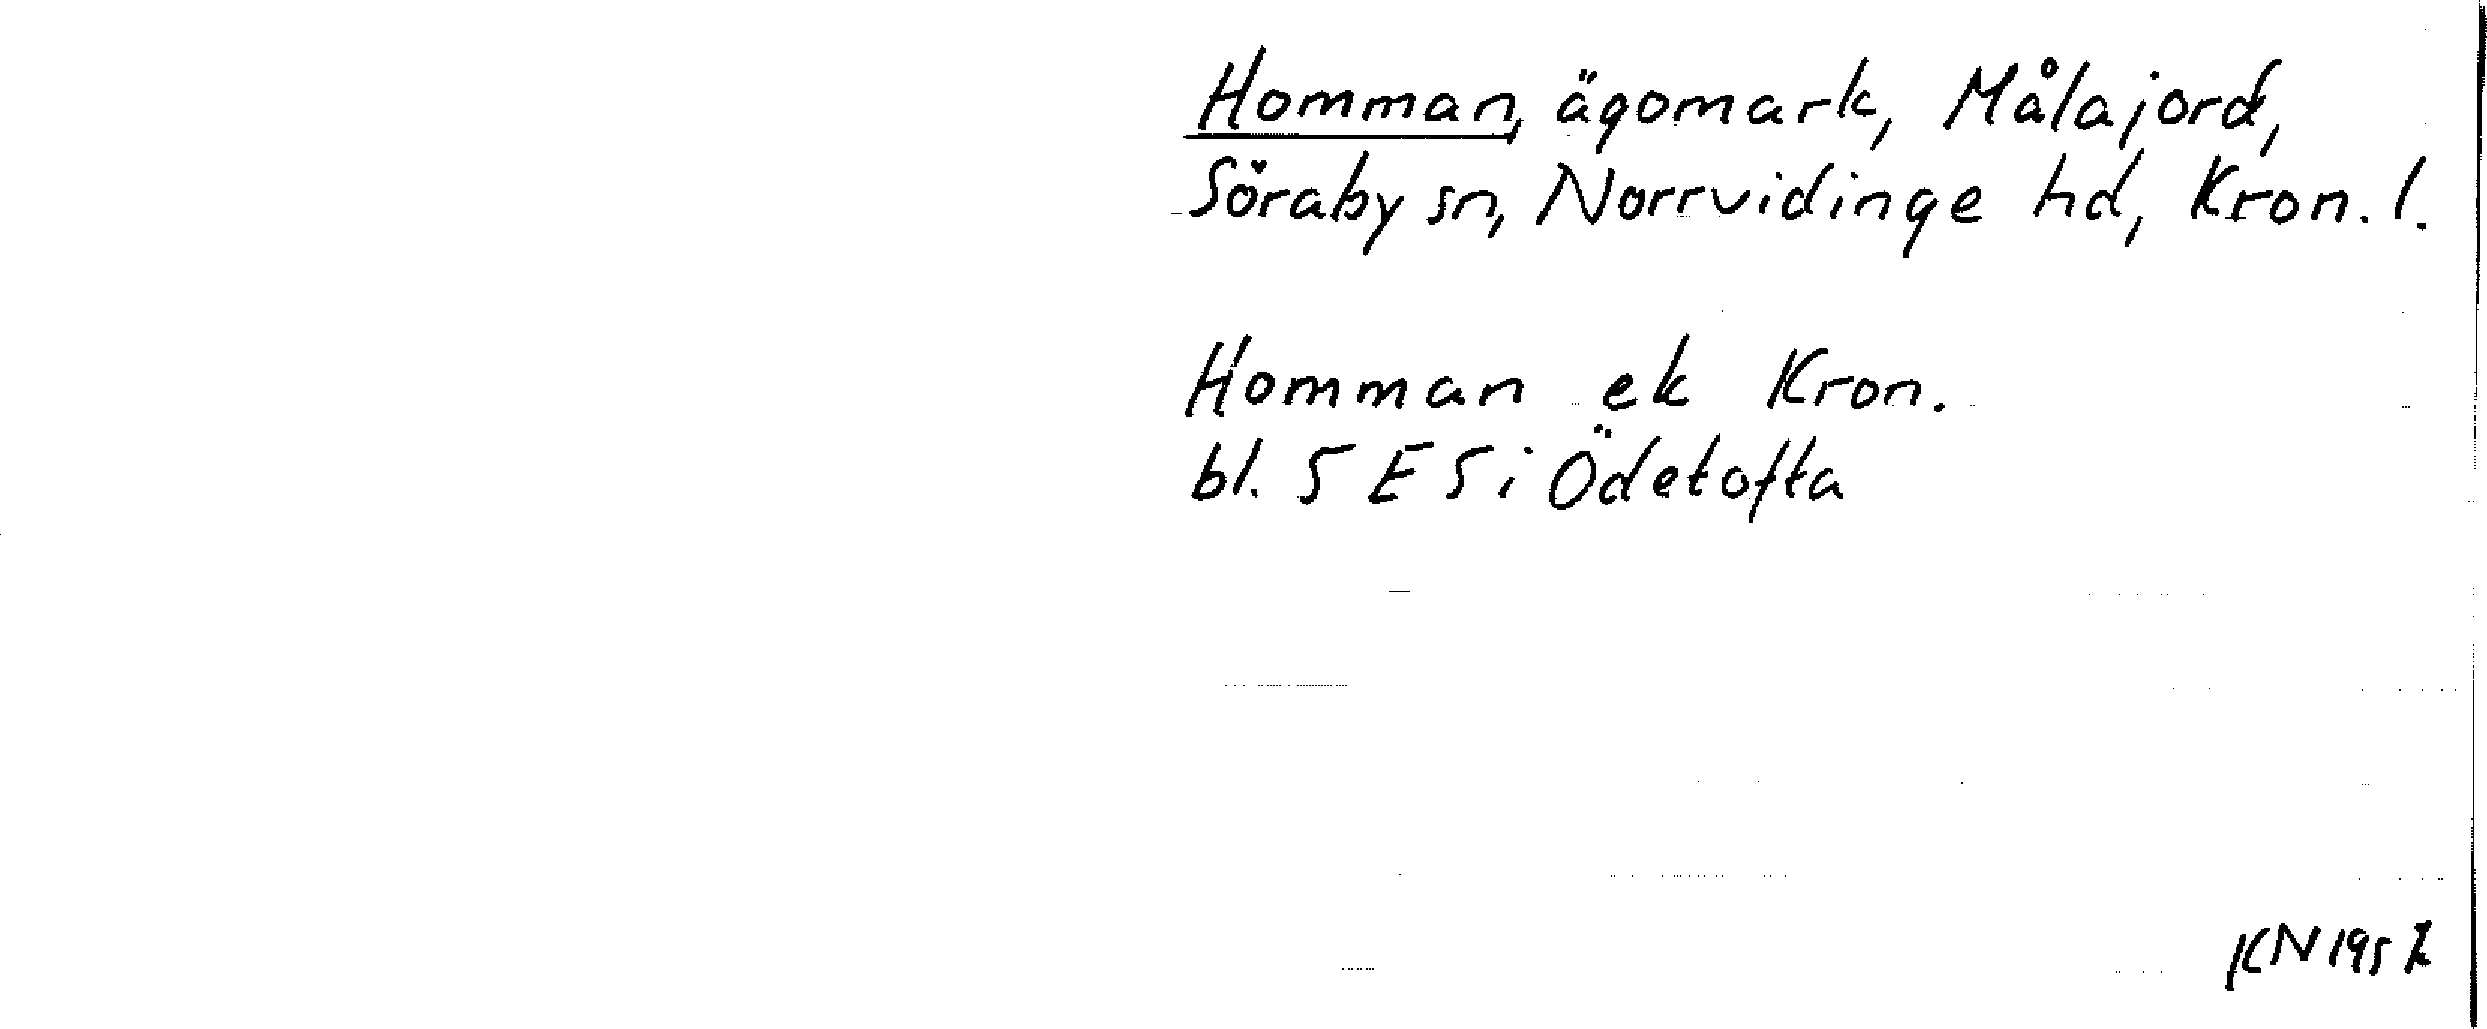 Homman, ägomark, Målajord,
Söraby sn, Norrvidinge hd, Kron. l.
Homman ek Kron.
bl. 5 E 5 i Ödetofta
KN 1957